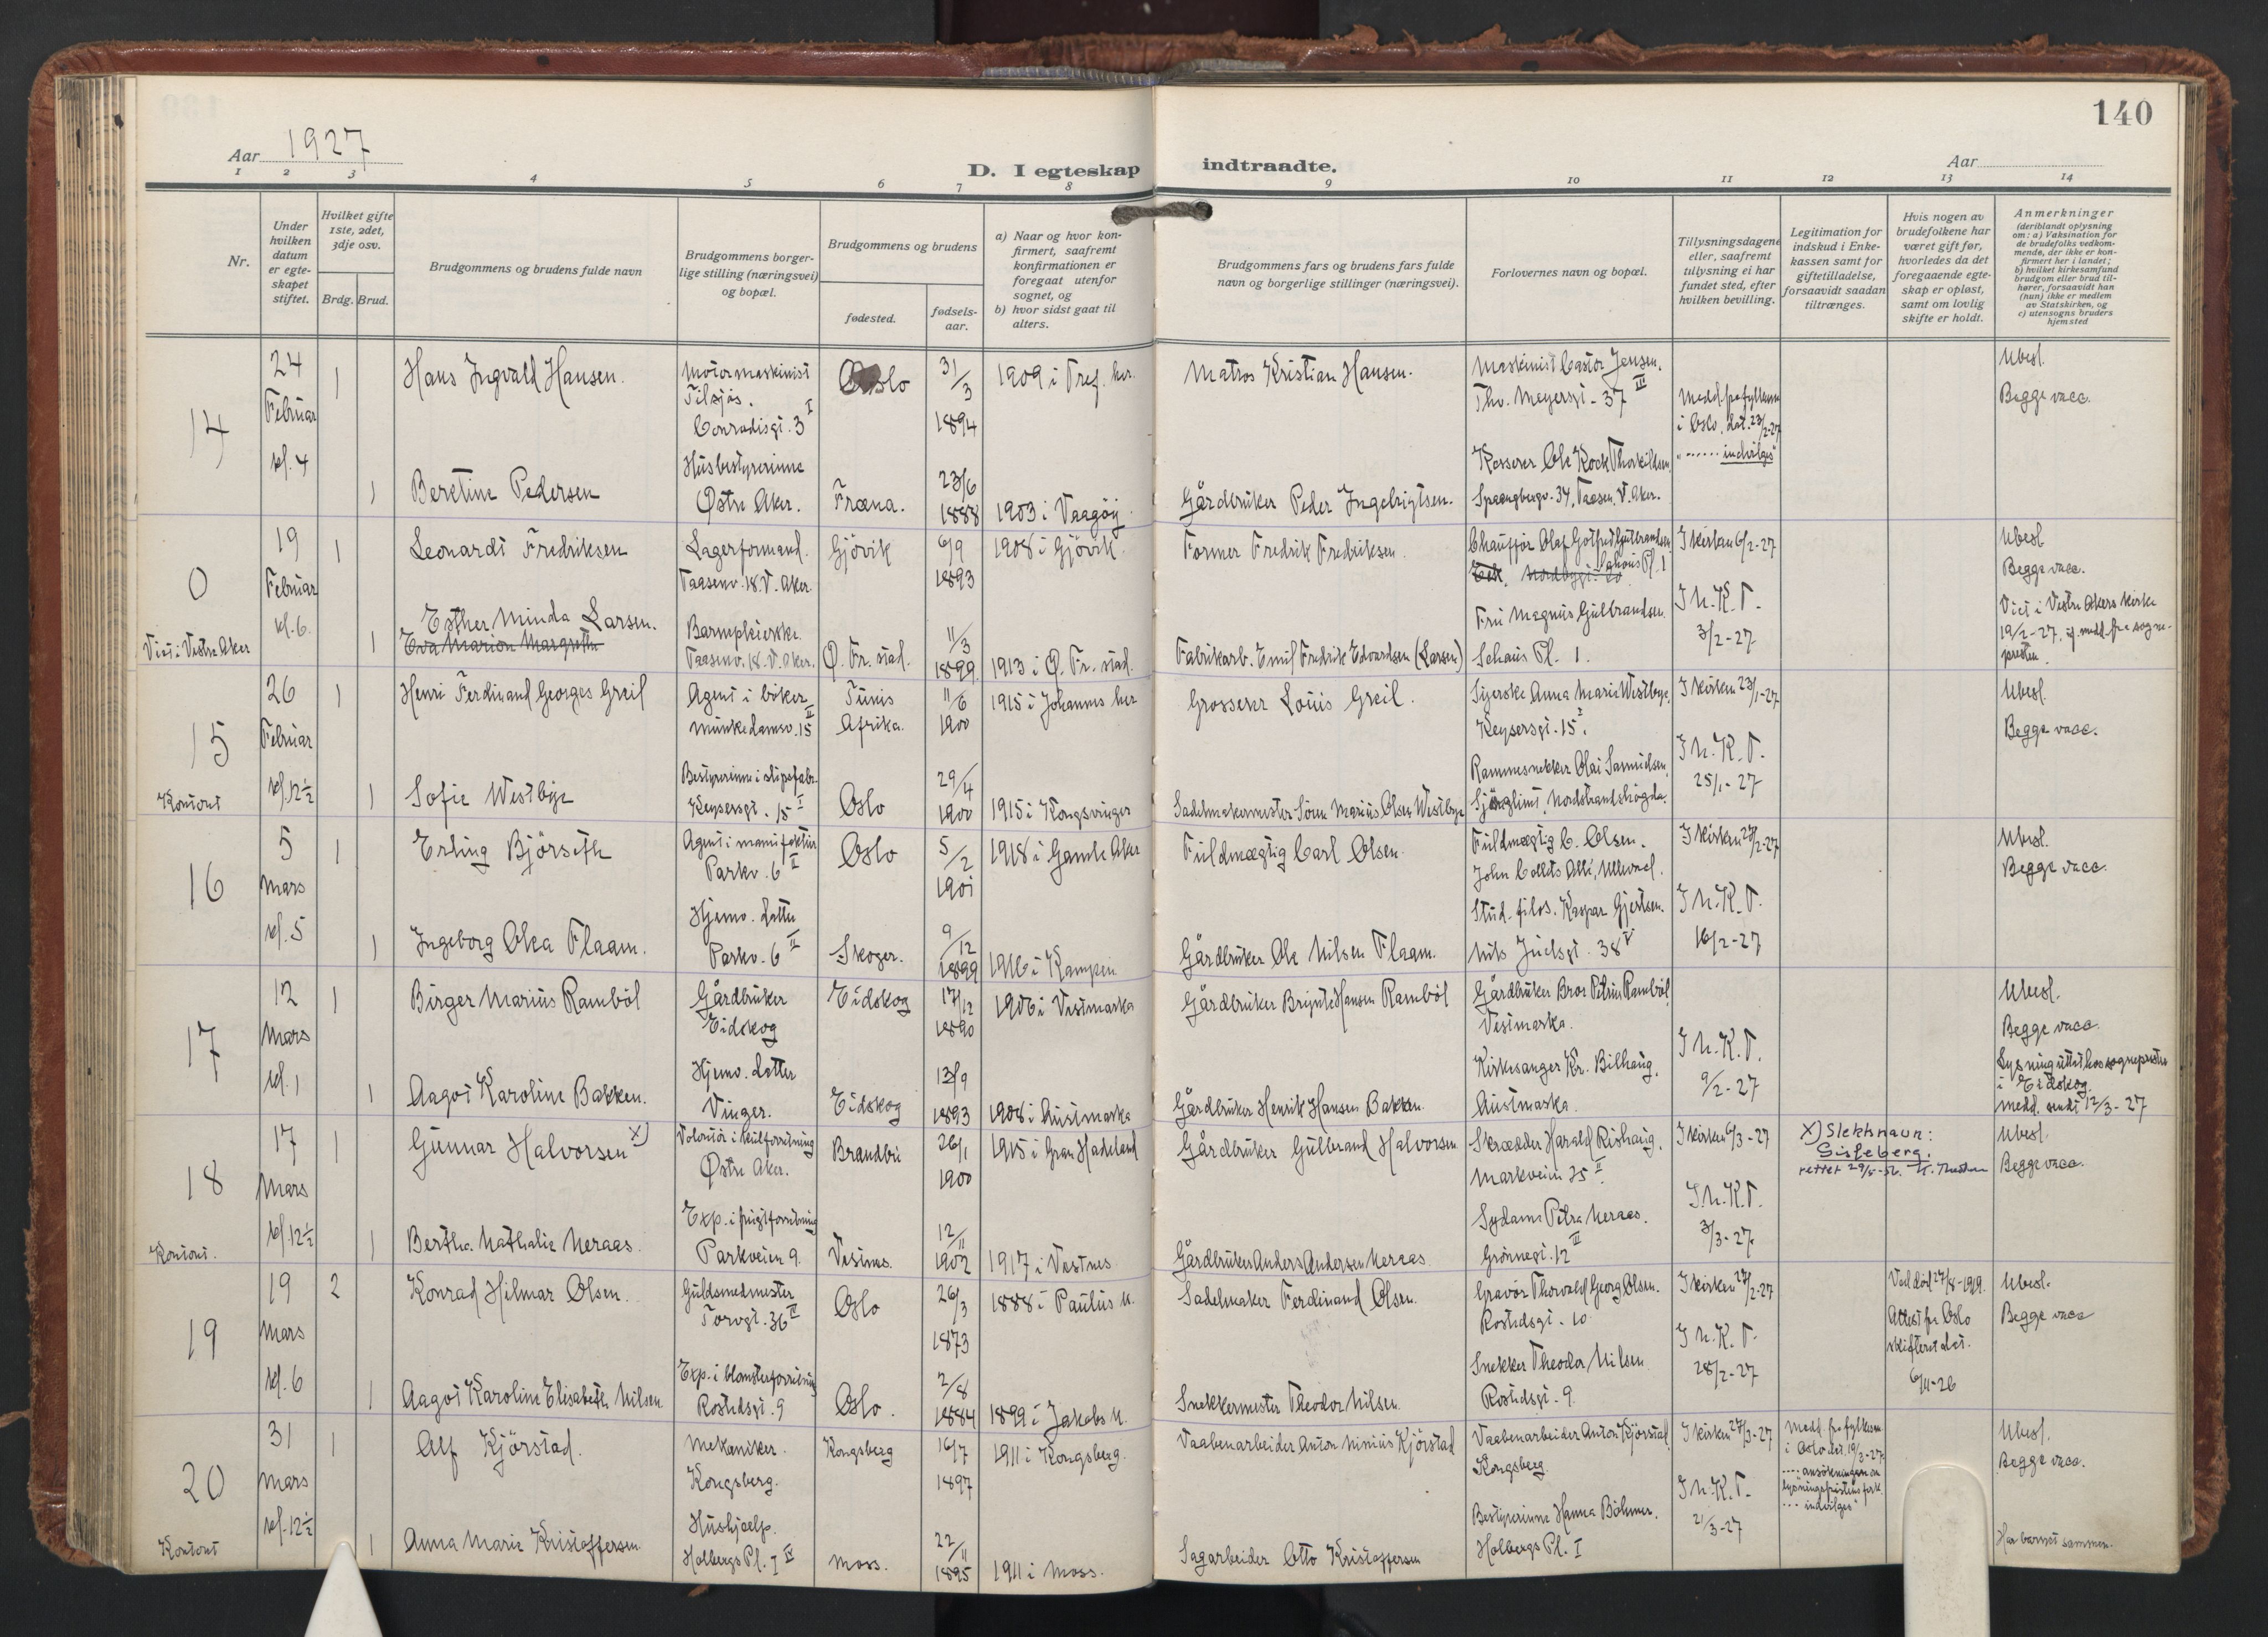 140
Aar 1927
D. I egteskap indtraadte.
Aar
1 2 3 4 5 6 7 8 9 10 11 12 13 14
Nr.
Under hvilken datum er egteskapet stiftet.
Hvilket gifte 1ste, 2det, 3dje osv.
Brdg. Brud.
Brudgommens og brudens fulde navn
Brudgommens borgerlige stilling (næringsvei) og bopæl.
Brudgommens og brudens
fødested.
fødselsaar.
a) Naar og hvor konfirmert, saafremt konfirmationen er foregaat utenfor sognet, og
b) hvor sidst gaat til alters.
Brudgommens fars og brudens fars fulde navn og borgerlige stillinger (næringsvei).
Forlovernes navn og bopæl.
Tillysningsdagene eller, saafremt tillysning ei har fundet sted, efter hvilken bevilling.
Legitimation for indskud i Enkekassen samt for giftetilladelse, forsaavidt saadan tiltrænges.
Hvis nogen av brudefolkene har været gift før, hvorledes da det foregaaende egteskap er opløst, samt om lovlig skifte er holdt.
Anmerkninger (deriblandt oplysning om: a) Vaksination for de brudefolks vedkommende, der ikke er konfirmert her i landet; b) hvilket kirkesamfund brudgom eller brud tilhører, forsaavidt han (hun) ikke er medlem av Statskirken, og c) utensogns bruders hjemsted
14
24 Februar kl. 4
1
Hans Ingvald Hansen.
Motormaskinist Tilsjøs. Conradisgt. 3 I
Oslo
31/3 1894
1909 i Tref. ker.
Matros Kristian Hansen.
Maskinist Castor Jensen. Thv. Meyersgt. 37 III
Medd. fra fylkesm. i Oslo, dat. 23/2-27 "...... indvilges"
Ubesl.
Begge vacc.
1
Berthine Pedersen
Husbestyrerinne Østre Aker.
Fræna.
23/6 1888
1903 i Vaagøy
Gårdbruker Peder Ingebrigtsen.
Kasserer Ole Kock Thorkildsen, Spaangbergv. 34, Taasen, V. Aker.
0
Viet i Vestre Aker
19 Februar kl. 6.
1
Leonardt Fredriksen
Lagerformand. Taasenv. 18. V. Aker.
Gjövik
6/9 1893
1908 i Gjövik
Former Fredrik Fredriksen.
Chaufför Olaf Gotfred Gulbrandsen, Schous Pl. 1
I kirken 6/2-27
I N. K. T. 3/2-27
Ubesl.
Begge vacc.
Viet i Vestre Akers kirke 19/2-27, if. medd. fra sognepresten.
1
Esther Minda Larsen.
Eva Marion Margrethe
Barnepleierske. Taasenv. 18. V. Aker.
Ø. Fr. stad.
11/3 1899
1913 i Ø. Fr. stad.
Fabrikarb. Emil Fredrik Edvardsen (Larsen)
Fru Magnus Gulbrandsen. Schous Pl. 1.
15
Kontoret
26 Februar kl. 12½
1
Henri Ferdinand Georges Greil
Agent i böker Munkedamsv. 15 II
Tunis Afrika.
11/6 1900
1915 i Johannes ker
Grosserer Louis Greil.
Syerske Anna Marie Westbye, Keysersgt. 15 I.
I kirken 23/1-27
I N. K. T. 25/1-27
Ubesl.
Begge vacc.
1
Sofie Westbye
Bestyrerinne i slipsfabr. Keysersgt. 15 I
Oslo
29/4 1900
1915 i Kongsvinger
Sadelmakermester Sören Marius Olsen Westbye
Rammesnekker Olai Samuelsen, Sjöglimt, Nordstrandshögda.
16
5 Mars kl. 5
1
Erling Björseth
Agent i manufaktur Parkv. 6 II
Oslo
5/2 1901
1918 i Gamle Aker
Fuldmægtig Carl Olsen.
Fuldmægtig C. Olsen. John Colletts Allé, Ullevaal.
I kirken 27/2-27
I N. K. T. 16/2-27
Ubesl.
Begge vacc.
1
Ingeborg Olea Flaam.
Hjemv. Datter Parkv. 6 II
Skoger.
9/12 1899
1916 i Kampen
Gårdbruker Ole Nilsen Flaam.
Stud. filos. Kaspar Gjertsen. Nils Juelsgt. 38 V
17
12 Mars kl. 1
1
Birger Marius Ramböl
Gårdbruker Eidskog
Eidskog
17/12 1890
1906 i Vestmarka
Gårdbruker Brynte Hansen Ramböl
Gårdbruker Bror Petrus Ramböl, Vestmarka.
I N. K. T. 9/2-27
Ubesl.
Begge vacc.
Lysning uttat hos sogneprest i Eidskog. Medd. sendt 12/3-27
1
Aagot Karoline Bakken.
Hjemv. Datter Vinger.
Eidskog
13/9 1893
1908 i Austmarka
Gårdbruker Henrik Hansen Bakken.
Kirkesanger Kr. Bilhaug, Austmarka.
18
Kontoret.
17 Mars kl. 12½
1
Gunnar Halvorsen X)
Volontör i kulforretning Østre Aker.
Brandbu
26/1 1900
1915 i Gran Hadeland
Gårdbruker Gulbrand Halvorsen
Skrædder Harald Rishaug, Markveien 35 II.
I kirken 6/3-27
I N. K. T. 3/3-27
X) Slektnavn: Gisleberg. rettet 29/5-56.
Ubesl.
Begge vacc.
1
Bertha Nathalie Neraas.
Exp. i frugtforretning Parkveien 9.
Vestnes.
12/11 1902
1917 i Vestnes
Gårdbruker Anders Andersen Neraas
Sydame Petra Neraas. Grönnegt. 12 III
19
19 Mars kl. 6
2
Konrad Hilmar Olsen.
Guldsmedmester Torvgt. 36 II
Oslo
26/3 1873
1888 i Paulus M.
Sadelmaker Ferdinand Olsen.
Gravör Thorvald Georg Olsen. Rostedsgt. 10
I kirken 27/2-27
I N. K. T. 28/2-27
Ved död 27/8-1919. Attest fr. Oslo skifteret dat. 6/11-26
Ubesl.
Begge vacc
1
Aagot Karoline Elisabeth Nilsen
Exp. i blomsterforretning Rostedsgt. 9
Oslo.
2/8 1884
1899 i Jakobs M.
Snekkermester Theodor Nilsen
Snekker Theodor Nilsen. Rostedsgt. 9.
20
Kontoret
31 Mars kl. 12½
1
Alf Kjörstad.
Mekaniker. Kongsberg.
Kongsberg
16/7 1897
1911 i Kongsberg.
Vaabenarbeider Anton Ninius Kjörstad
Vaabenarbeider Anton Kjörstad Kongsberg.
I kirken 27/3-27
I N. K. T. 21/3-27
Medd. fra fylkesm. i Oslo dat. 19/3-27. .... ansökningen om lysningsfristens fork. ... indvilges"
Ubesl.
Begge vacc.
1
Anna Marie Kristoffersen.
Hushjælp. Holbergs Pl. I IV
Moss.
22/11 1895
1911 i Moss.
Sagarbeider Otto Kristoffersen
Bestyrerinne Hanna Böhmer. Holbergs Pl. I
Har barnet sammen.